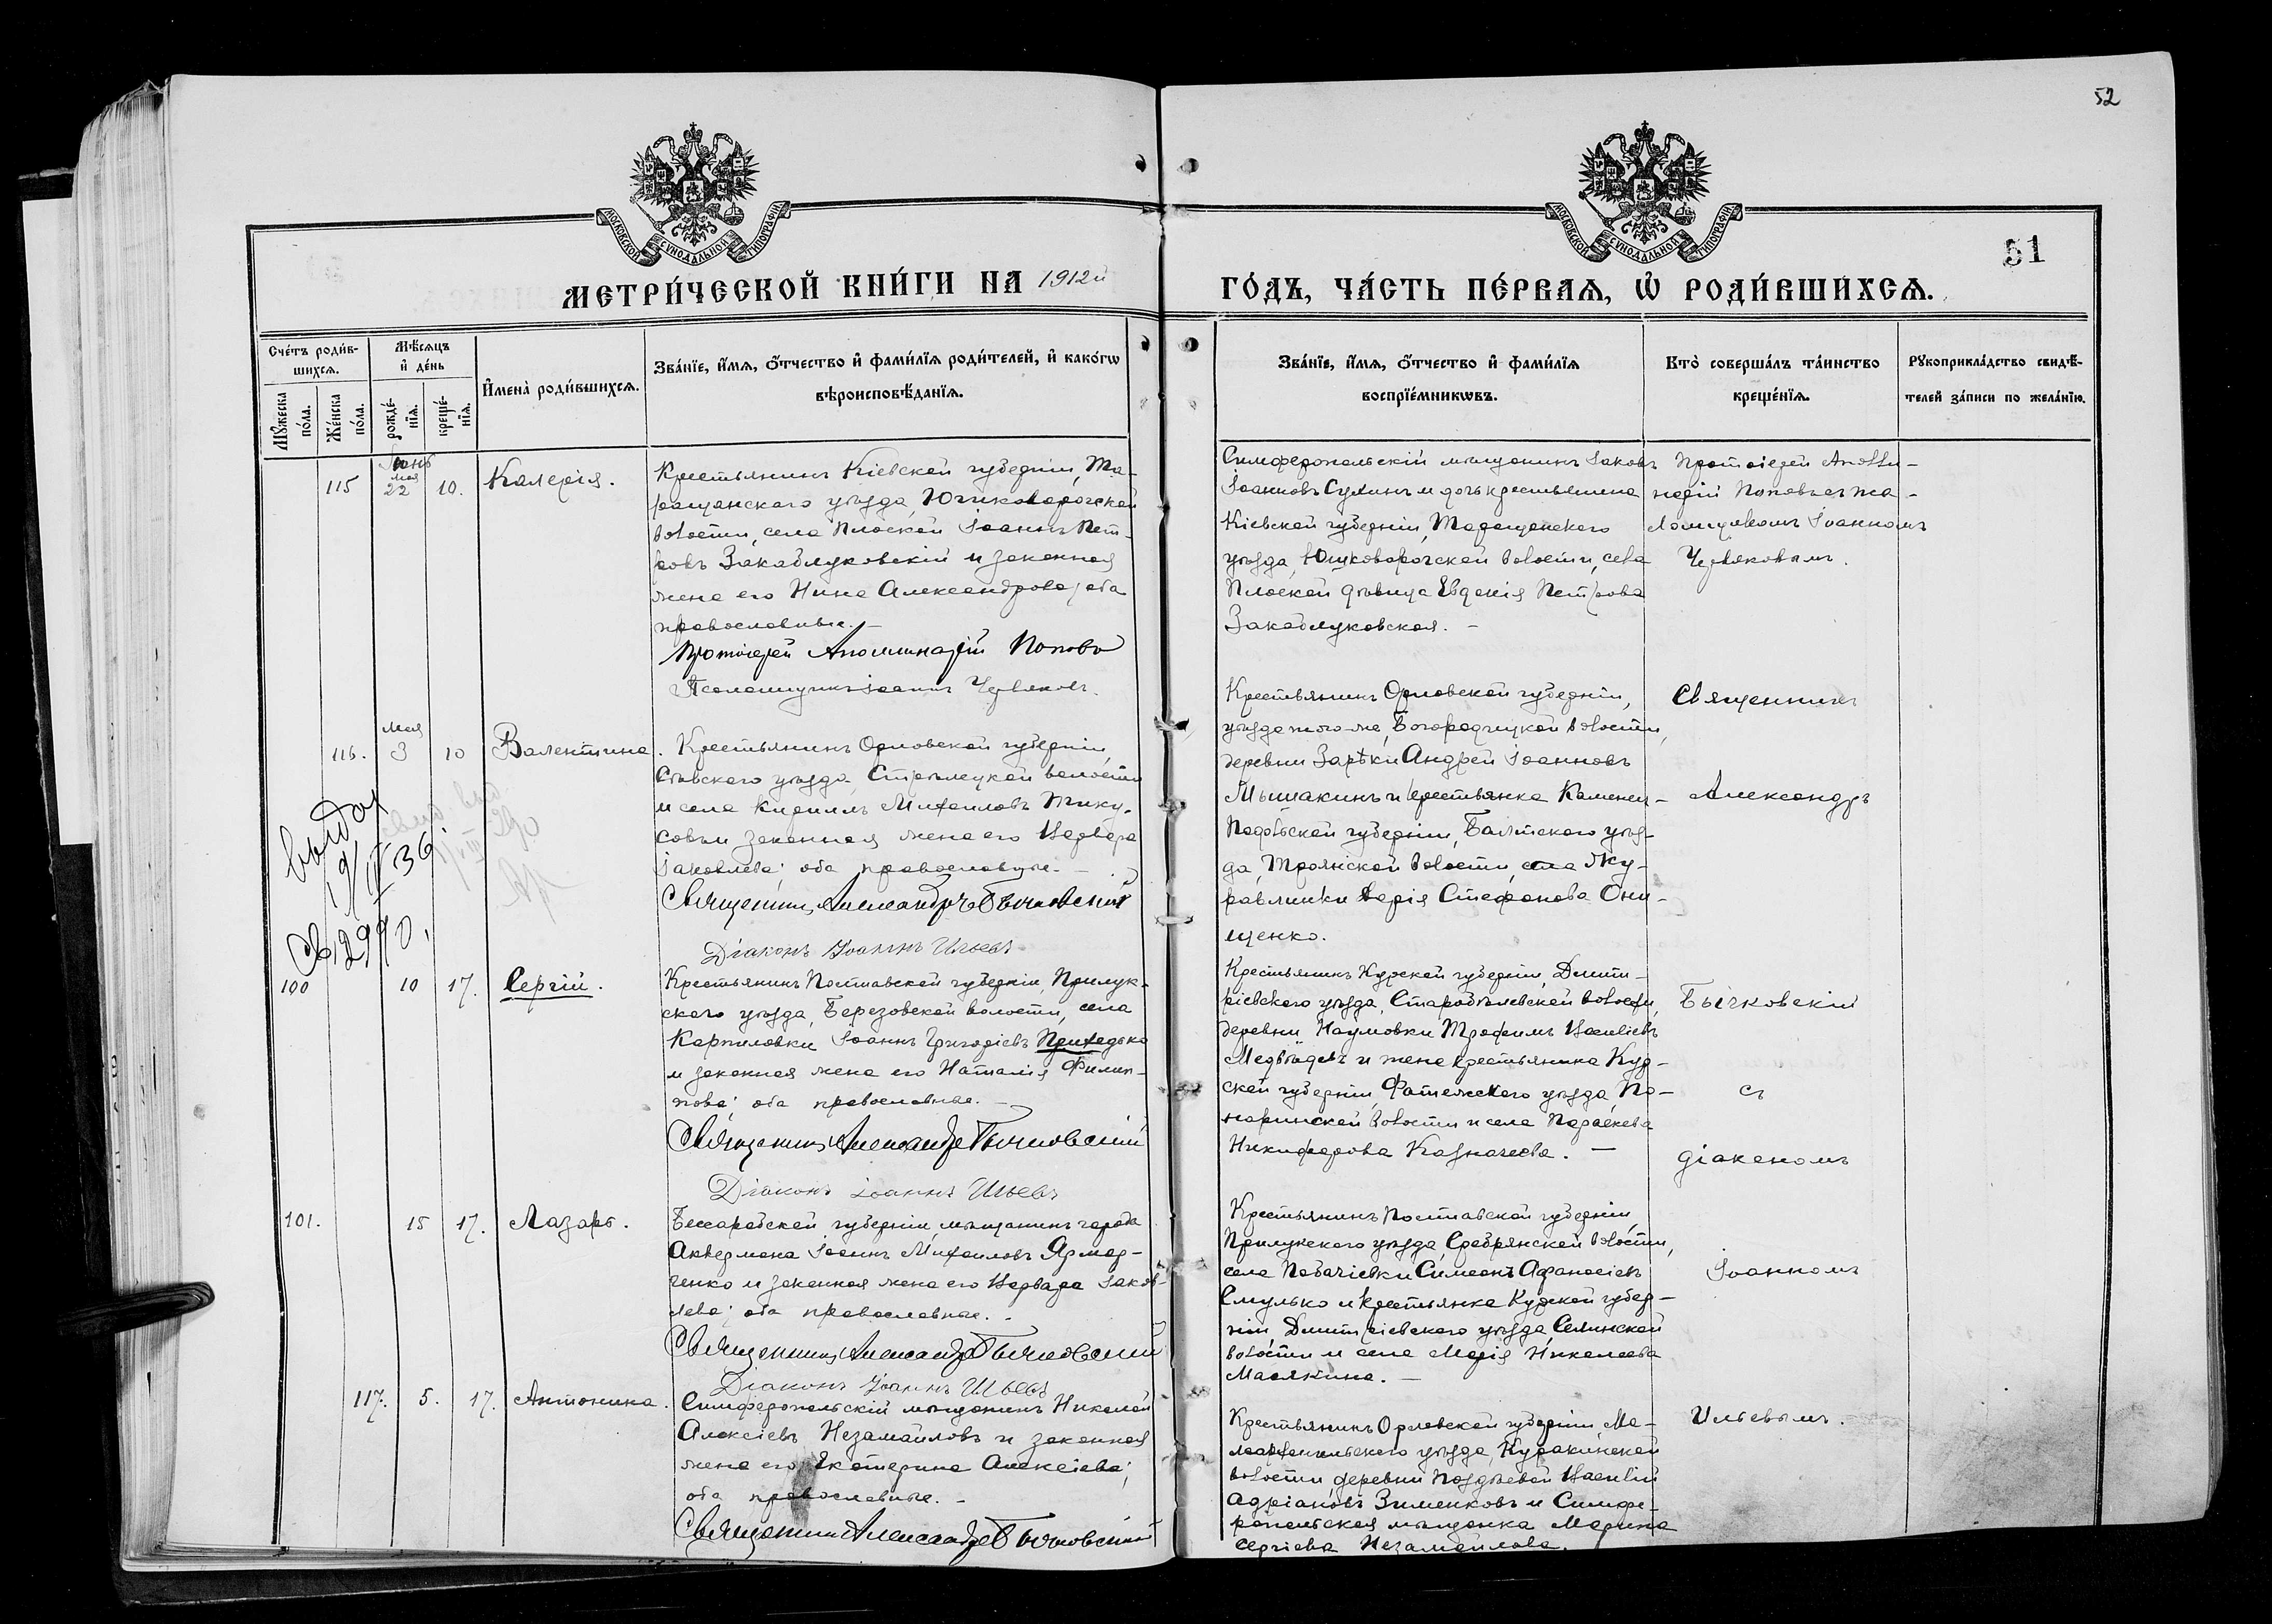 52
МОСКОВСКОЙ СѴНОДАЛЬНОЙ ТИПОГРАФІИ
МОСКОВСКОЙ СѴНОДАЛЬНОЙ ТИПОГРАФІИ
51
МЕТРИ́ЧЕСКОЙ КНИ́ГИ НА 1912й
ГО́ДЪ, ЧА́СТЬ ПЕ́РВАЯ, Ѡ҆ РОДИ́ВШИХСЯ.
Сче́тъ роди́в-
шихся.
Мѣ́сяцъ
и҆ де́нь
И҆мена̀ роди́вшихся.
Зва́нїе, и҆́мя, ѻ҆́тчество и҆ фами́лїя роди́телей, и҆ како́гѡ
вѣроисповѣ́данїя.
Мꙋ́жеска
по́ла.
Же́нска
по́ла.
рожде́-
нїя.
креще́-
нїя.
Зва́нїе, и҆́мя, ѻ҆́тчество и҆ фами́лїя
воспрїе́мникѡвъ.
Кто̀ соверша́лъ та́инство
креще́нїя.
Рꙋкоприкла́дство свидѣ́-
телей за́писи по жела́нїю.
Іюнь
мая
115 22 10. Калерія.
Крестьянинъ Кіевской губерніи, Та-
ращанскаго уѣзда, Юшковорогской
волости, села Плоской Іоаннъ Пет-
ровъ Закаблуковскій и законная
жена его Нина Александрова; оба
православные. —
Протоіерей Аполлинарій Поповъ
Псаломщикъ Іоаннъ Червяковъ.
Симферопольскій мѣщанинъ Іаковъ
Іоанновъ Сухинъ и дочь крестьянина
Кіевской губерніи, Таращанскаго
уѣзда, Юшковорогской волости, села
Плоской дѣвица Евдокія Петрова
Закаблуковская. —
Протоіерей Аполли-
нарій Поповъ съ пса-
ломщикомъ Іоанномъ
Червяковымъ.
Мая
116. 3 10 Валентина.
Крестьянинъ Орловской губерніи,
Сѣвскаго уѣзда, Стрѣлецкой волости
и села Кириллъ Михаиловъ
законная жена его Варвара
Іаковлева; оба православные. —
Священникъ Александръ Бычковскій
Діаконъ Іоаннъ Ильевъ
Крестьянинъ Орловской губерніи,
уѣзда того-же, Богородицкой волости,
деревни Зарѣки Андрей Іоанновъ
Мышакинъ и крестьянка Каменец-
Подольской губерніи, Балтскаго уѣз-
да, Троянской волости, села Жу-
равлинки Дарія Стефанова Они-
щенко.
Священникъ
Александръ
Бычковскій
съ
діакономъ
Іоанномъ
Ильевымъ.
выдан
19/IV 36
СВ 12990.
100 10 17. Сергій.
Крестьянинъ Полтавской губерніи, Прилук-
скаго уѣзда, Березовской волости, села
Карпиловки Іоаннъ Григоріевъ Приходько
и законная жена его Наталія Филип-
пова; оба православные. —
Священникъ Александръ Бычковскій
Діаконъ Іоаннъ Ильевъ
Крестьянинъ Курской губерніи, Дмит-
ріевскаго уѣзда, Старобѣлевской волости,
деревни Наумовки Трофимъ Васильевъ
Медвѣдевъ и жена крестьянина Кур-
ской губерніи, Фатежскаго уѣзда, По-
нарской волости и села Параскева
Никифорова Казначеева. —
101. 15 17. Лазарь.
Бессарабской губерніи, мѣщанинъ города
Аккермана Іоаннъ Михаиловъ Ярмар-
ченко и законная жена его Варвара Іаков-
лева; оба православные. —
Священникъ Александръ Бычковскій
Діаконъ Іоаннъ Ильевъ
Крестьянинъ Полтавской губерніи,
Прилукскаго уѣзда, Сребрянской волости,
села Побачіевки Симеонъ Афанасіевъ
Смулько и крестьянка Курской губер-
ніи, Дмитріевскаго уѣзда, Селинской
волости и села Марія Николаева
Маслкина. —
117. 5. 17. Антонина.
Симферопольскій мѣщанинъ Николай
Алексіевъ Незамаиловъ и законная
жена его Екатерина Алексіева;
оба православные. —
Священникъ Александръ Бычковскій
Крестьянинъ Орловской губерніи, Ма-
лоархангельскаго уѣзда, Куракинской
волости, деревни Поздѣевой Василій
Адріановъ Зименковъ и Симфе-
ропольская мѣщанка Марина
Сергіева Незамаилова.